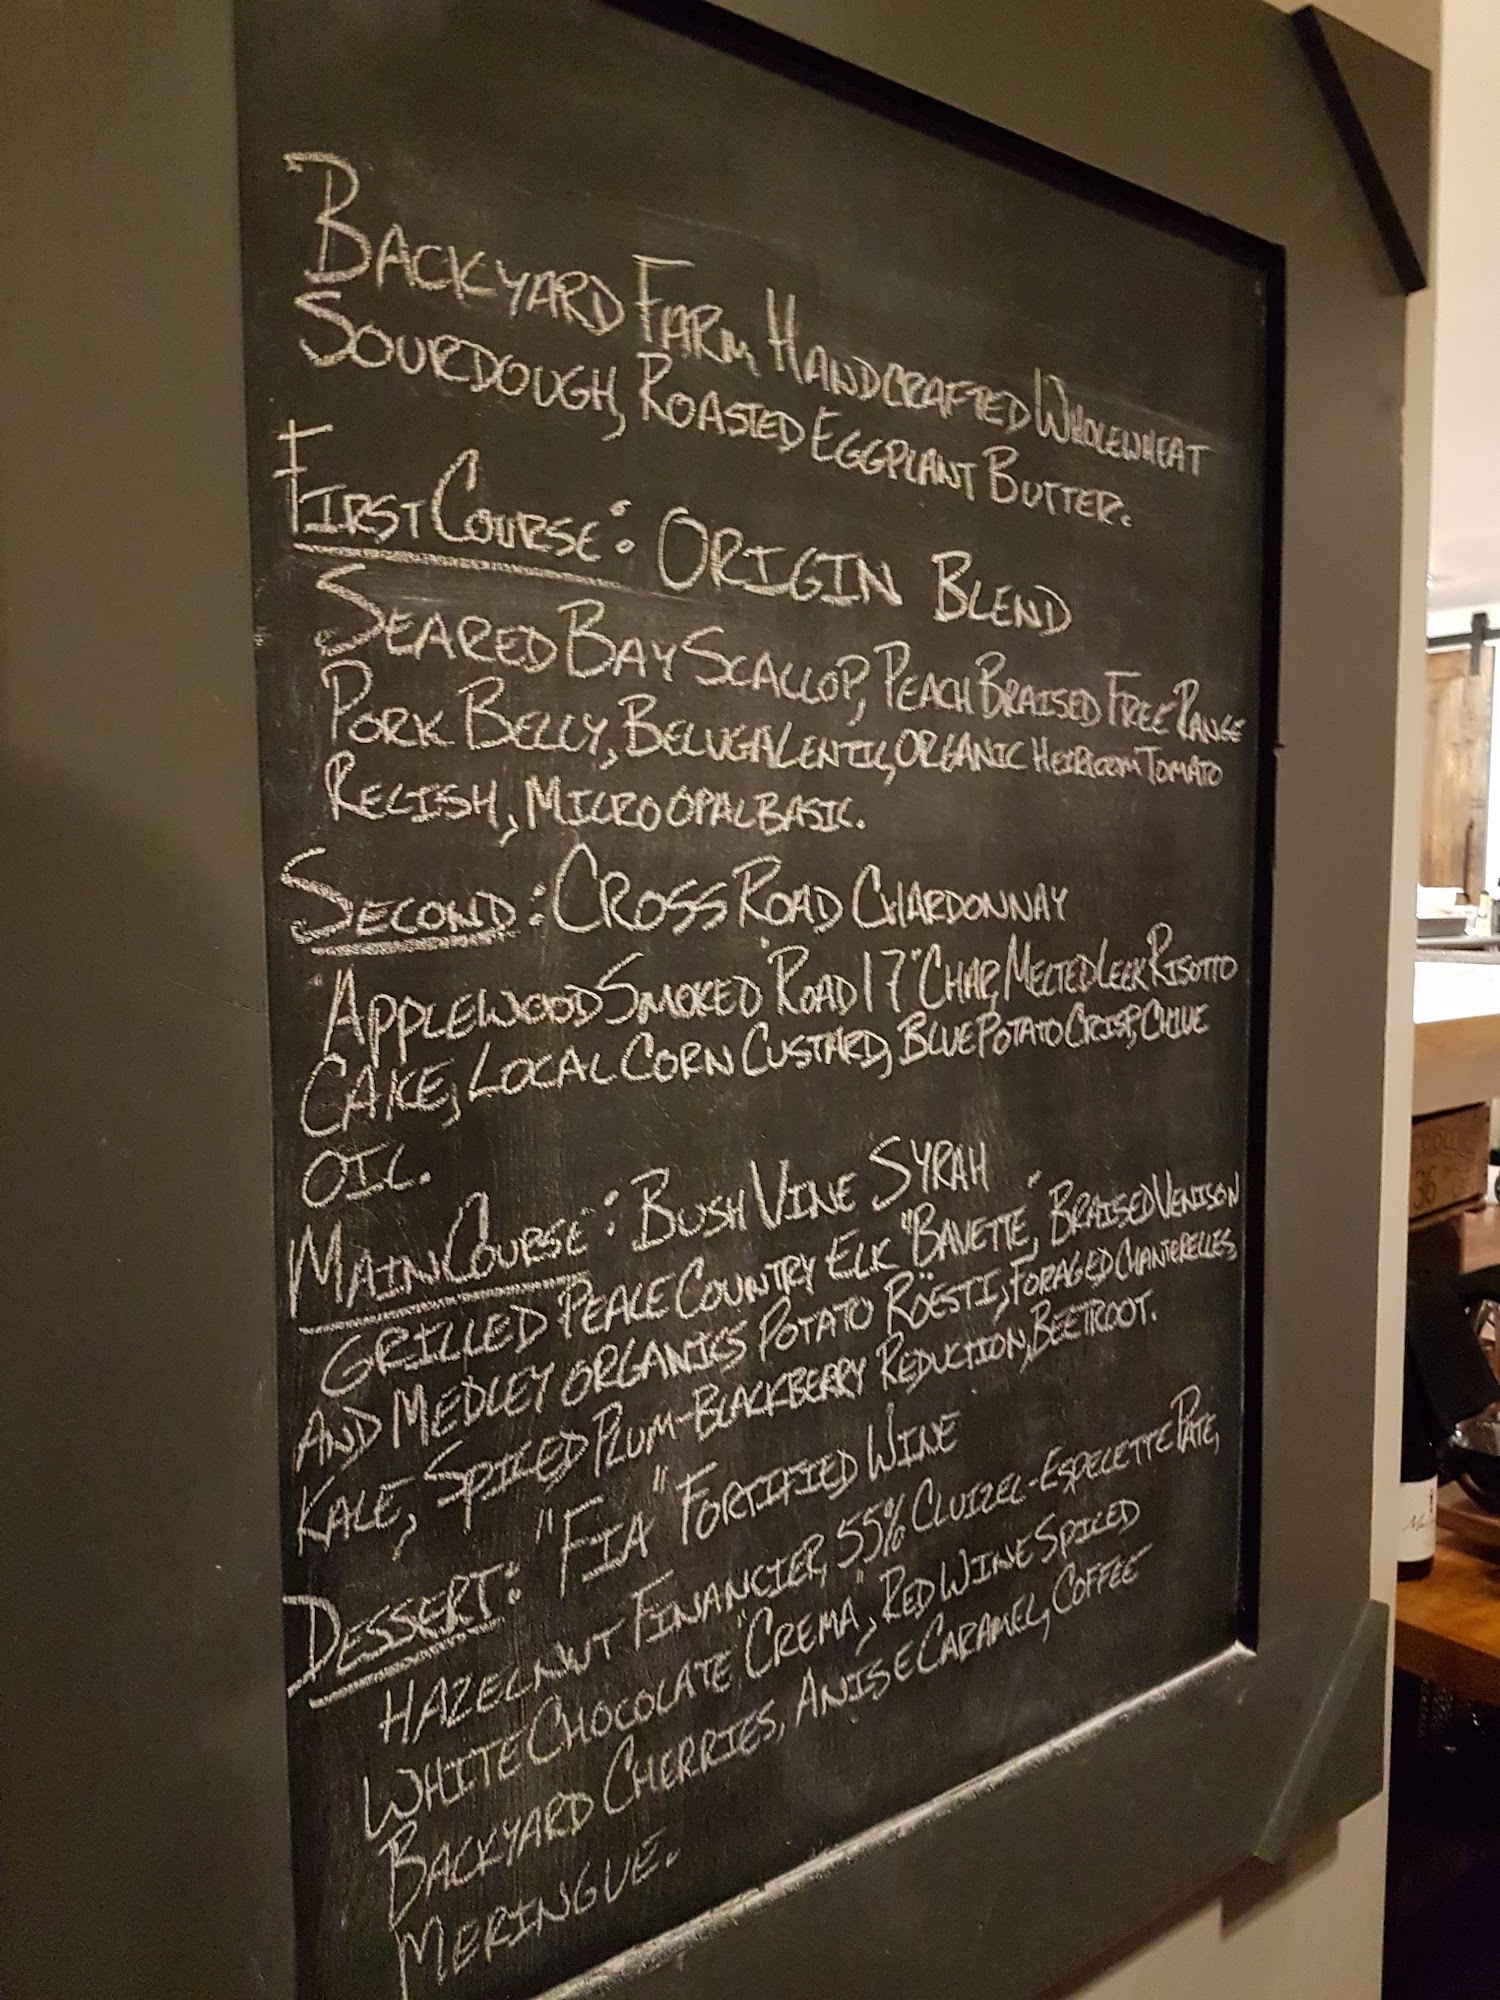 BACKYARD FARM HANDCRAFTED WHOLEWHEAT
SOURDOUGH, ROASTED EGGPLANT BUTTER.
FIRST COURSE: ORIGIN BLEND
SEARED BAY SCALLOP, PEACH BRAISED FREE RANGE
PORK BELLY, BELUGA LENTIL, ORGANIC HEIRLOOM TOMATO
RELISH, MICRO OPAL BASIC.
SECOND: CROSS ROAD CHARDONNAY
APPLEWOOD SMOKED "ROAD 17" CHAR, MELTED LEEK RISOTTO
CAKE, LOCAL CORN CUSTARD, BLUE POTATO CRISP, CHIVE
OIL.
MAIN COURSE: BUSH VINE SYRAH
GRILLED PEACE COUNTRY ELK "BAVETTE", BRAISED VENISON
AND MEDLEY ORGANICS POTATO RÖESTI, FORAGED CHANTERELLES,
KALE, SPICED PLUM-BLACKBERRY REDUCTION, BEETROOT.
DESSERT: "FIA" FORTIFIED WINE
HAZELNUT FINANCIER, 55% CLUIZEL-ESPELETTE PATE,
WHITE CHOCOLATE "CREMA", RED WINE SPICED
BACKYARD CHERRIES, ANISE CARAMEL, COFFEE
MERINGUE.
36